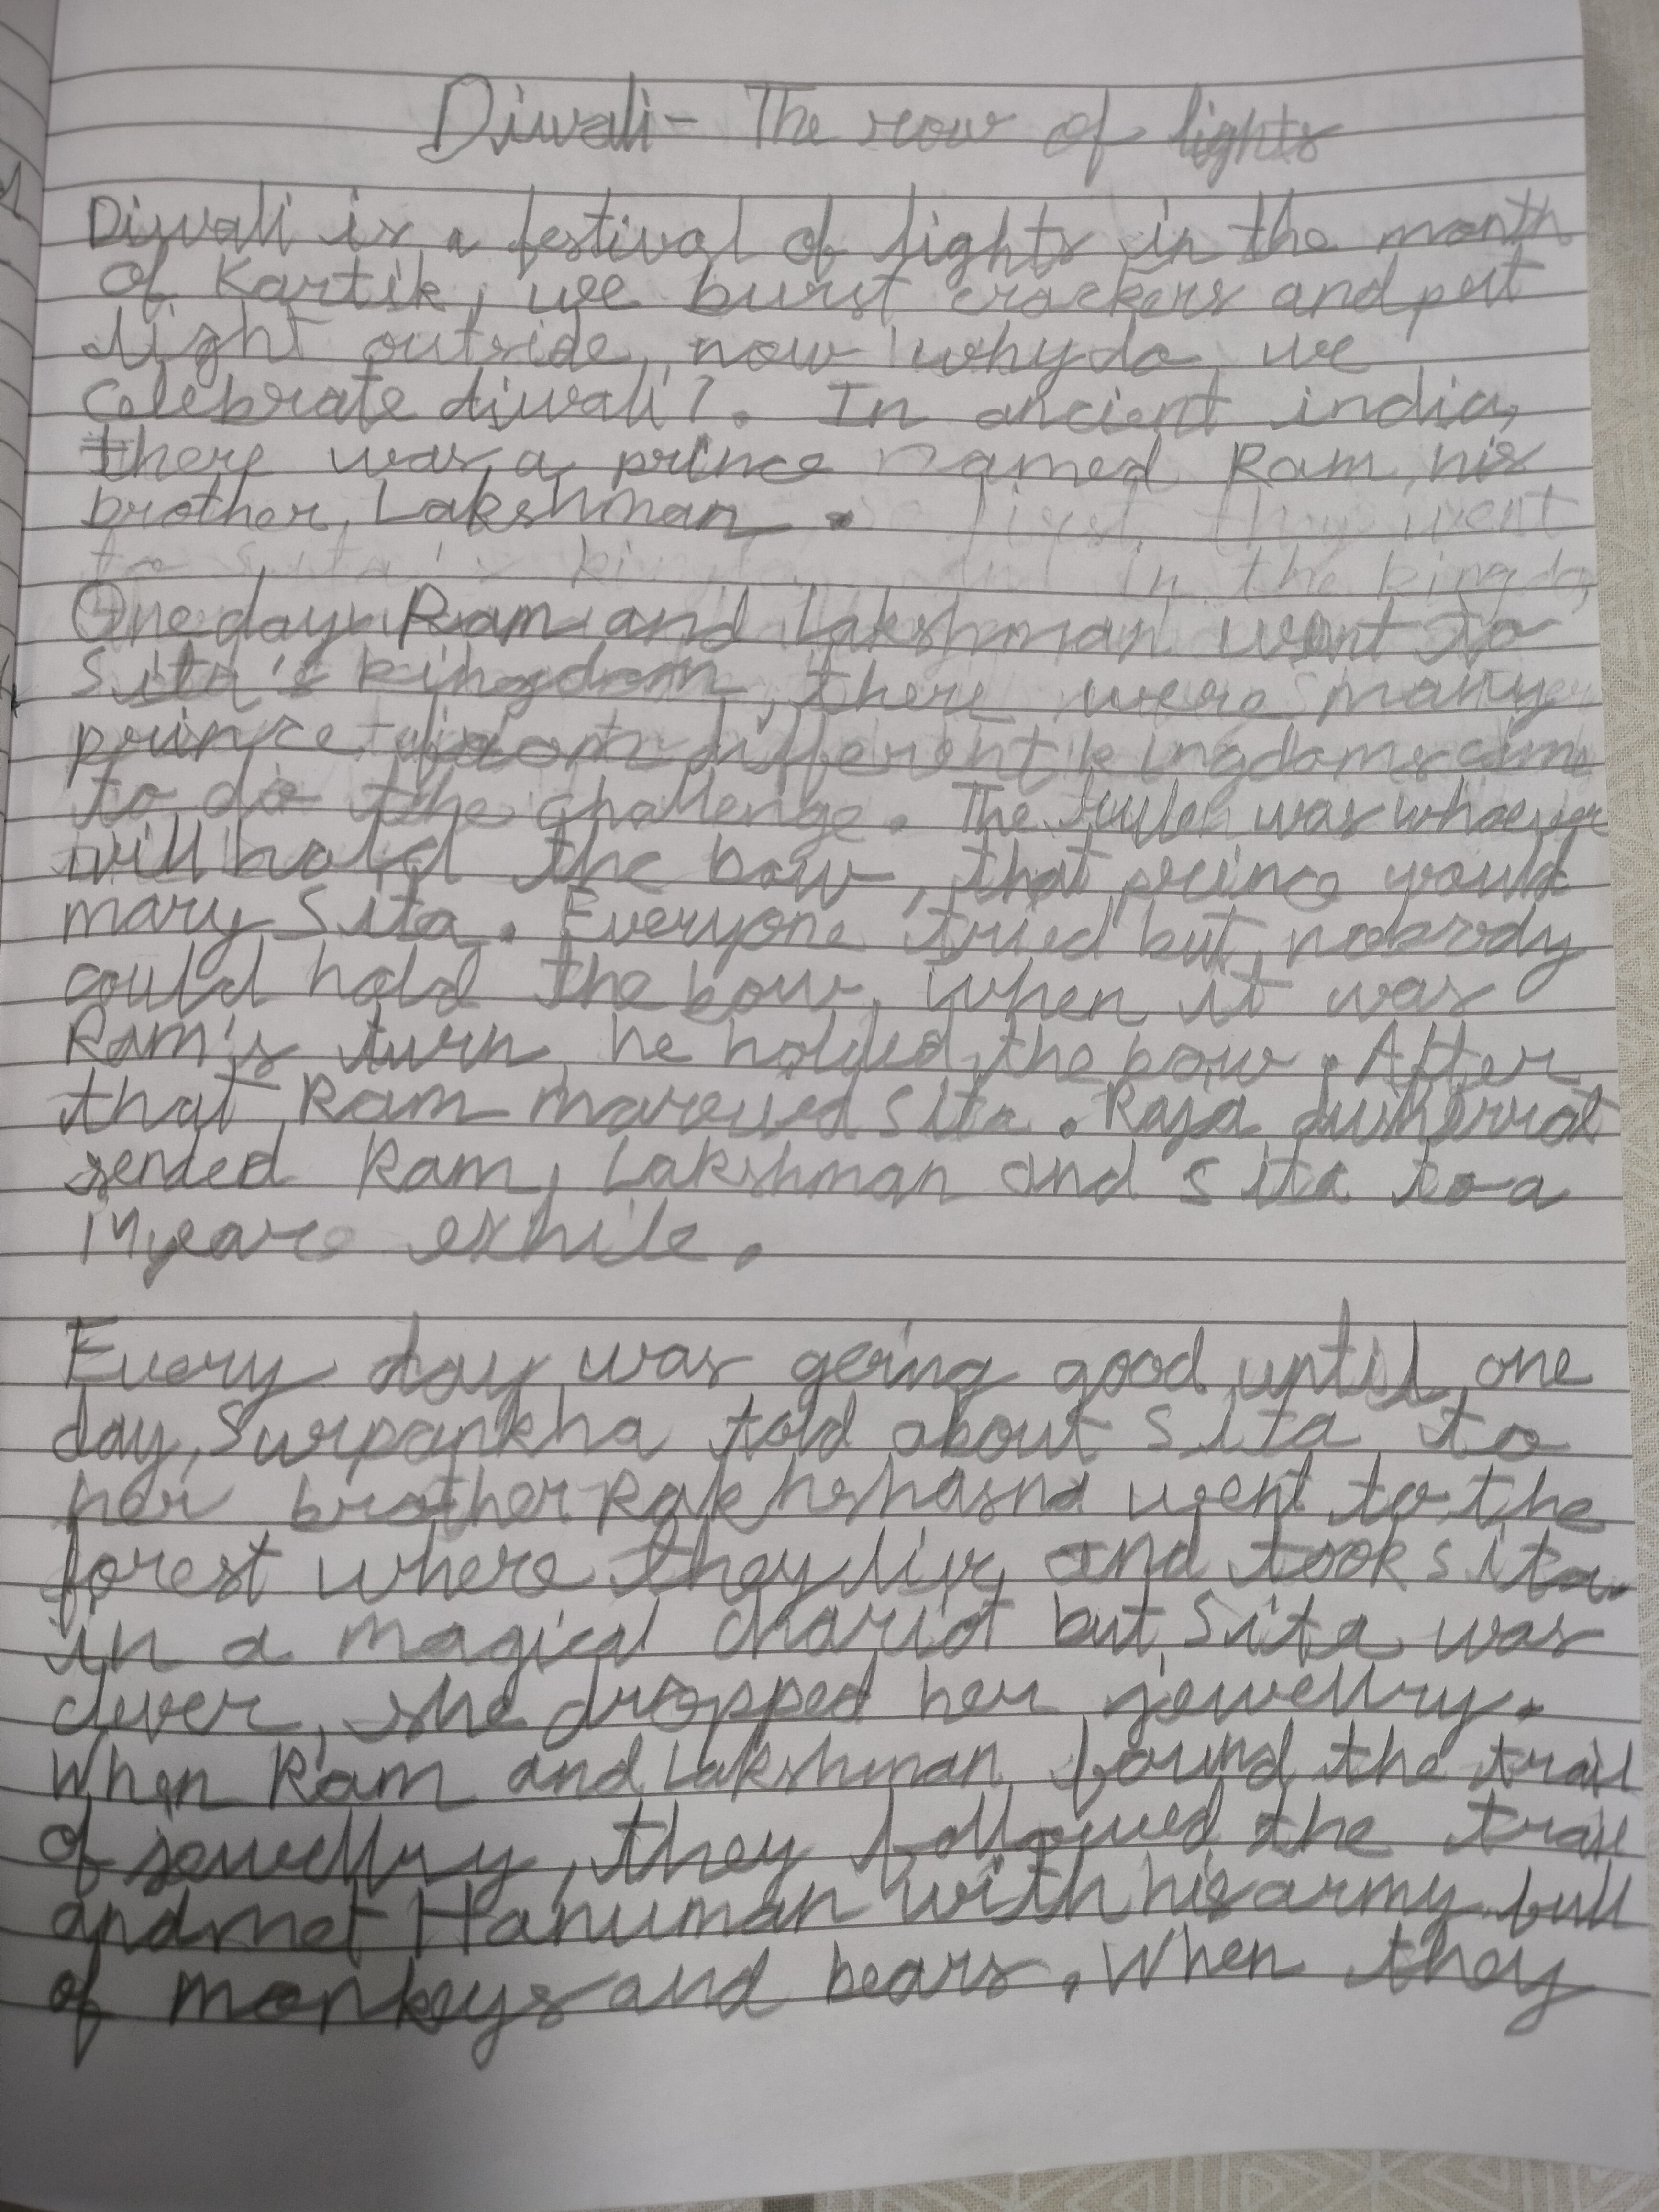 Diwali - The row of lights
Diwali is a festival of lights in the month
of Kartik, we burst crackers and put
light outside, now why do we
celebrate diwali?. In ancient india,
there was a prince named Ram, his
brother, Lakshman.
One day Ram and Lakshman went to
Sita's kingdom, there were many
prince from different kingdoms came
to do the challenge. The was whoever
will hold the bow, that prince would
mary Sita. Everyone tried but nobody
could hold the bow, when it was
Ram's turn he holded the bow. After
that Ram marrued Sita. Raja
sended Ram, Lakshman and Sita to a
14 years exhile.
Every day was going good until one
day, Surpankha told about Sita to
her brother went to the
forest where they liv and took sita
in a magical chariot but Sita was
clever, she dropped her jewellry.
When Ram and Lakshman found the trail
of jewellry, they followed the trail
and met Hanuman with his army full
of monkeys and bears. When they